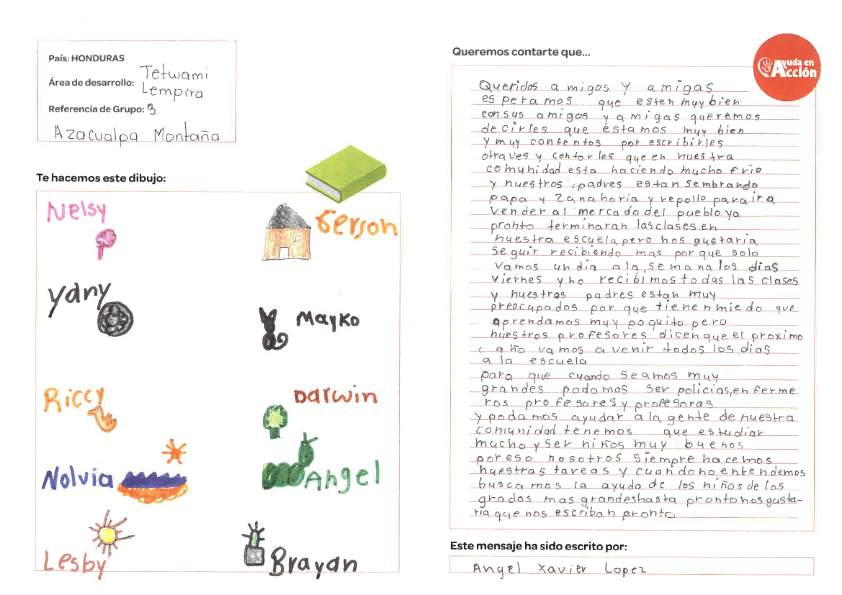 País: HONDURAS
Área de desarrollo: Tetwami
Lempira
Referencia de Grupo: 3
Azacualpa Montaña
Te hacemos este dibujo:
Nelsy
Gerson
ydny
Mayko
Riccy
Darwin
Nolvia
Angel
Lesby
Brayan
Queremos contarte que...
Ayuda en
Acción
Queridos amigos y amigas
esperamos que esten muy bien
con sus amigos y amigas queremos
decirles que estamos muy bien
y muy contentos por escribirles
otraves y contorles que en nuestra
comunidad esta haciendo mucho frio
y nuestros padres estan sembrando
papa y zanahoria y repollo para ir a
vender al mercado del pueblo ya
pronto terminaran las clases en
nuestra escuela pero nos gustaria
seguir recibiendo mas por que solo
vamos un dia a la semana los dias
viernes y no recibimos todas las clases
y nuestros padres estan muy
preocupados por que tienen miedo que
aprendamos muy poquito pero
nuestros profesores dicen que el proximo
año vamos a venir todos los dias
a la escuela
para que cuando seamos muy
grandes podamos ser policias, en ferme
ros profesores y profesoras
y podamos ayudar a la gente de nuestra
comunidad tenemos que estudiar
mucho y ser niños muy buenos
por eso nosotros siempre hacemos
nuestras tareas y cuando no entendemos
buscamos la ayuda de los niños de los
grados mas grandes hasta pronto nos gusta-
ria que nos escriban pronto
Este mensaje ha sido escrito por:
Angel Xavier Lopez